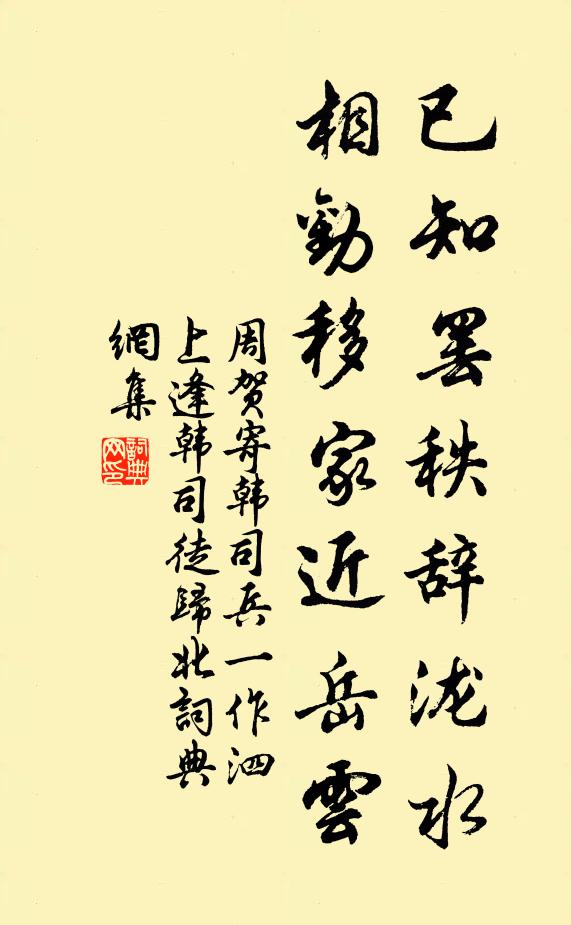 已知罢秩辞泷水
相勸移家近岳雲
周贺寄韩司兵一作泗
上逢韩司徒歸北詞典
網集
詞典
网印